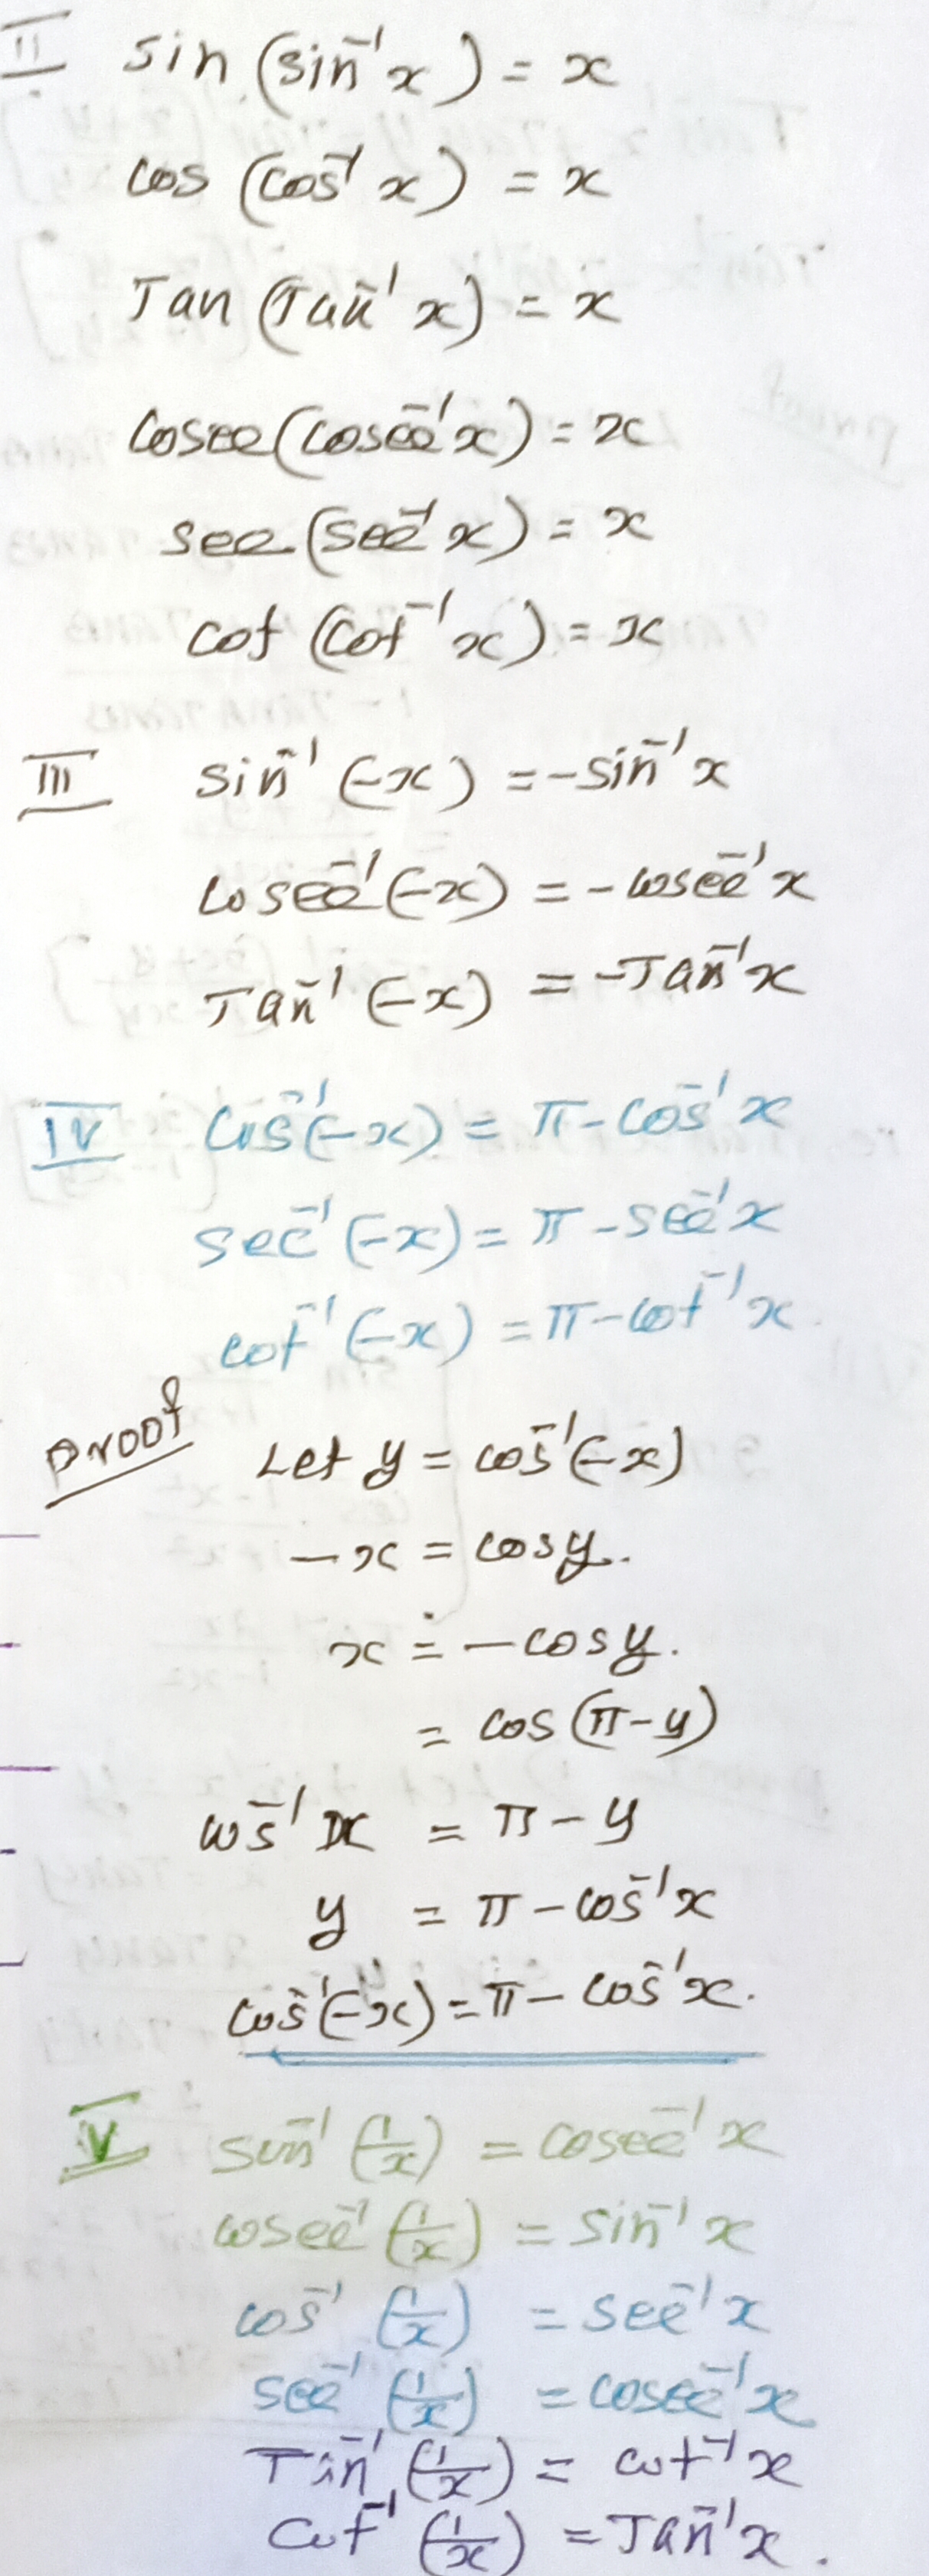 II sin (sin⁻¹x) = x
cos (cos⁻¹ x) = x
Tan (Tan⁻¹ x) = x
cosec (cosec⁻¹x) = x
sec (sec⁻¹ x) = x
cot (cot⁻¹ x) = x
III sin⁻¹ (-x) = -sin⁻¹x
cosec⁻¹ (-x) = -cosec⁻¹ x
Tan⁻¹ (-x) = -Tan⁻¹x
IV cos⁻¹(-x) = π - cos⁻¹ x
sec⁻¹ (-x) = π - sec⁻¹x
cot⁻¹ (-x) = π - cot⁻¹ x.
Proof Let y = cos⁻¹(-x)
-x = cos y.
x = - cos y.
= cos (π - y)
cos⁻¹ x = π - y
y = π - cos⁻¹x
cos⁻¹(-x) = π - cos⁻¹x.
V sin⁻¹ (1/x) = cosec⁻¹ x
cosec⁻¹ (1/x) = sin⁻¹ x
cos⁻¹ (1/x) = sec⁻¹ x
sec⁻¹ (1/x) = cosec⁻¹ x
Tan⁻¹ (1/x) = cot⁻¹ x
cot⁻¹ (1/x) = Tan⁻¹ x.